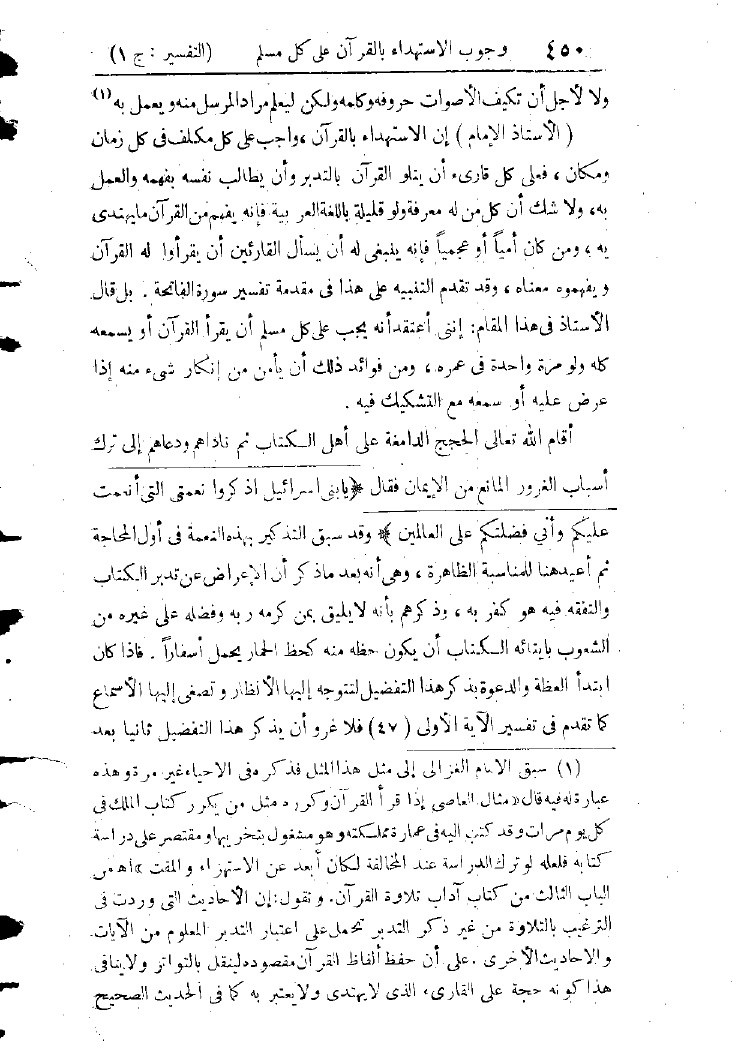 ٤٥٠ وجوب الاستهداء بالقرآن على كل مسلم (التفسير : ج ١)
ولا لأجل أن تكيف الأصوات حروفه وكلمه ولكن ليعلم مراد المرسل منه ويعمل به (١)
( الأستاذ الإمام ) إن الاستهداء بالقرآن ، واجب على كل مكلف فى كل زمان
ومكان ، فعلى كل قارىء أن يتلو القرآن بالتدبر وأن يطالب نفسه بفهمه والعمل
به ، ولا شك أن كل من له معرفة ولو قليلة باللغة العربية فإنه يفهم من القرآن ما يهتدى
به ، ومن كان أمياً أو عجمياً فإنه ينبغى له أن يسأل القارئين أن يقرأوا له القرآن
ويفهموه معناه ، وقد تقدم التنبيه على هذا فى مقدمة تفسير سورة الفاتحة . بل قال
الأستاذ فى هذا المقام : إننى أعتقد أنه يجب على كل مسلم أن يقرأ القرآن أو يسمعه
كله ولو مرة واحدة فى عمره ، ومن فوائد ذلك أن يأمن من إنكار شىء منه إذا
عرض عليه أو سمعه مع التشكيك فيه .
أقام الله تعالى الحجج الدامغة على أهل الكتاب ثم ناداهم ودعاهم إلى ترك
أسباب الغرور المانع من الإيمان فقال ﴿ يابنى اسرائيل اذكروا نعمتى التى أنعمت
عليكم وأني فضلتكم على العالمين ﴾ وقد سبق التذكير بهذه النعمة فى أول المحاجة
ثم أعيد هنا للمناسبة الظاهرة ، وهى أنه بعد ما ذكر أن الإعراض عن تدبر الكتاب
والتفقه فيه هو كفر به ، وذكرهم بأنه لا يليق بمن كرمه ربه وفضله على غيره من
الشعوب بايتائه الكتاب أن يكون حظه منه كحظ الحمار يحمل أسفاراً . فاذا كان
ابتدأ العظة والدعوة بذكر هذا التفضيل لتتوجه إليها الأنظار وتصغى إليها الأسماع
كما تقدم فى تفسير الآية الأولى (٤٧) فلا غرو أن يذكر هذا التفضيل ثانيا بعد
(١) سبق الامام الغزالى إلى مثل هذا المثل فذكره فى الاحياء غير مرة وهذه
عبارة له فيه قال « مثال العاصى إذا قرأ القرآن وكرره مثل من يكرر كتاب الملك فى
كل يوم مرات وقد كتب اليه فى عمارة مملكته وهو مشغول بتخريبها ومقتصر على دراسة
كتابه فلعله لو ترك الدراسة عند المخالفة لكان أبعد عن الاستهزاء والمقت » اهـ من
الباب الثالث من كتاب آداب تلاوة القرآن . ونقول : إن الأحاديث التى وردت فى
الترغيب بالتلاوة من غير ذكر التدبر تحمل على اعتبار التدبر المعلوم من الآيات
والاحاديث الأخرى . على أن حفظ ألفاظ القرآن مقصوده لينقل بالتواتر ولا ينافى
هذا كونه حجة على القارى، الذى لا يهتدى ولا يعتبر به كما فى الحديث الصحيح